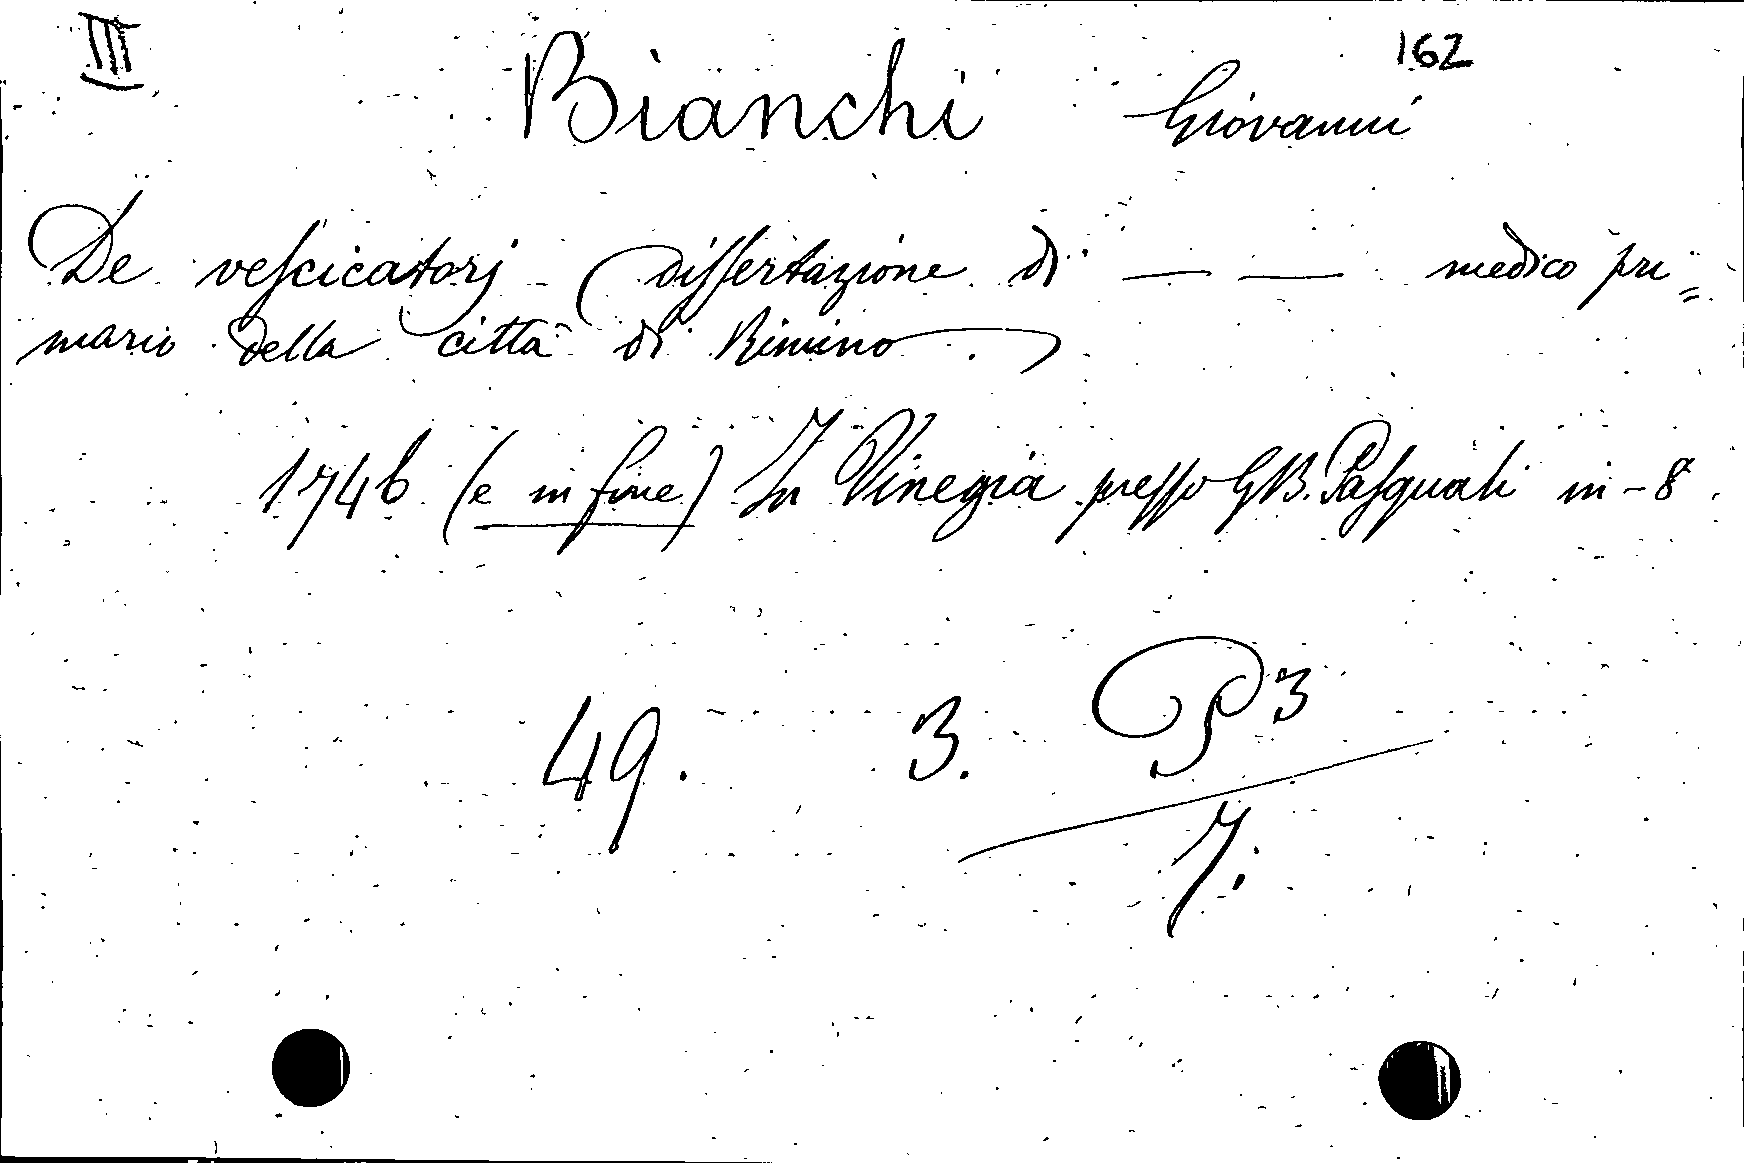 III 162
Bianchi Giovanni
De vescicatorj dissertazione di — — medico pri=
mario della città di Rimino.
1746 (e in fine) In Vinegia presso GB. Pasquali in-8.
49. 3. P3
7.